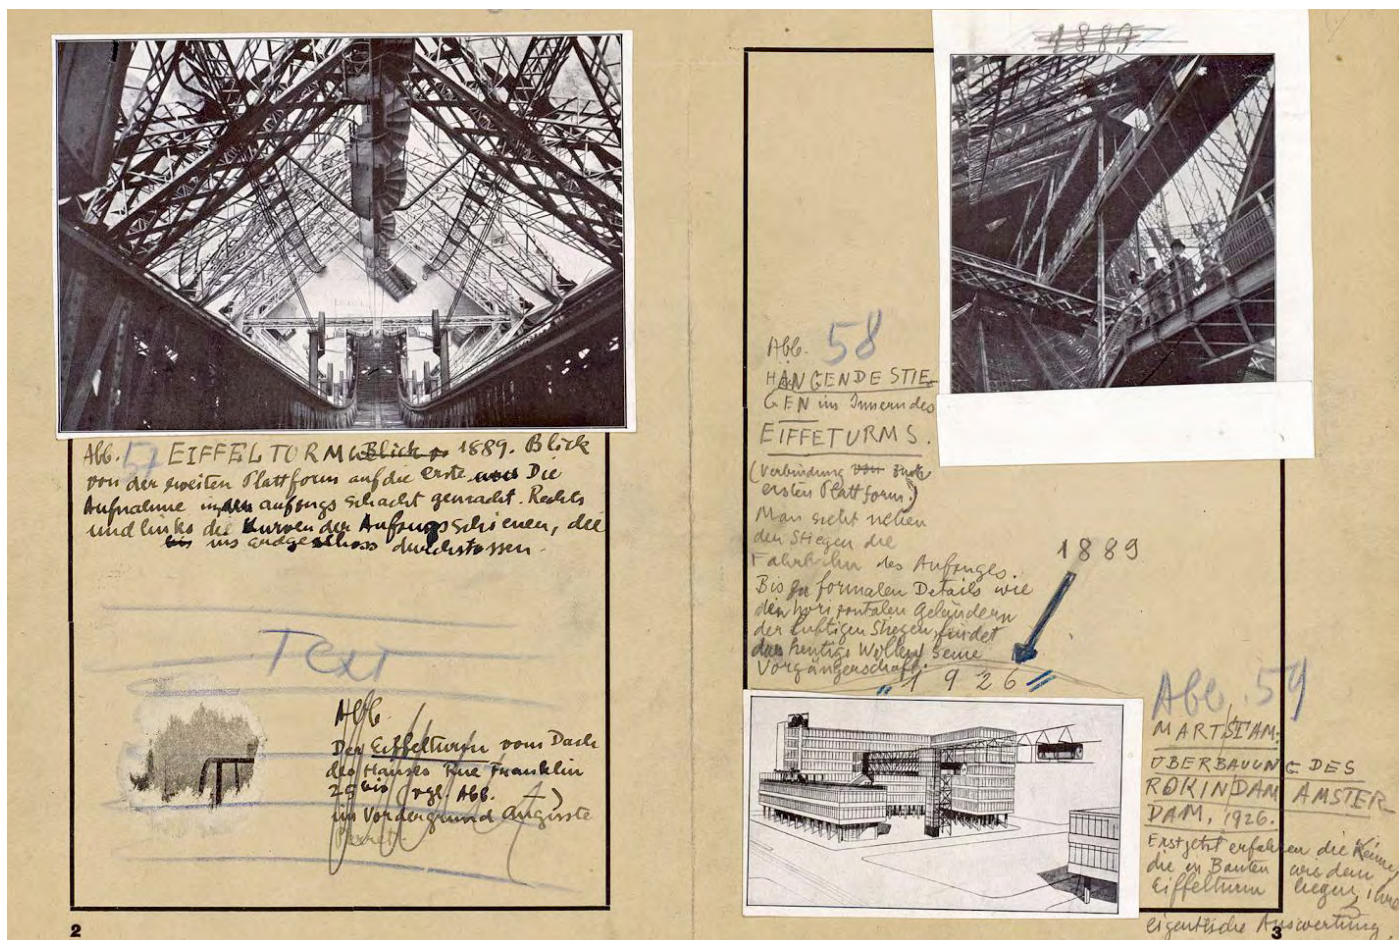 Abb. 57 EIFFELTURM Blick 1889. Blick
von der zweiten Plattform auf die erste Die
Aufnahme in den aufzugs schacht gemacht. Rechts
und links die Kurven der Aufzugsschienen, die
bis ins erdgeschoss durchstossen.
Text
Abb.
Der Eiffelturm vom Dach
des Hauses Rue Franklin
25 bis vgl. Abb.
im Vordergrund Auguste
Perret
2
1889
Abb. 58
HÄNGENDE STIE-
GEN im Innern des
EIFFETURMS.
(Verbindung von zur
ersten Plattform.)
Man sieht neben
den Stiegen die
Fahrbahn des Aufzuges.
Bis zu formalen Details wie
den horizontalen Geländern
der luftigen Stiegen, findet
das heutige Wollen seine
Vorgängerschaft.
1889
"1926"
Abb. 59
MART STAM:
ÜBERBAUUNG DES
ROKIN DAM AMSTER
DAM, 1926.
Erst jetzt erfahren die Keime,
die in Bauten wie dem
Eiffelturm liegen, ihre
eigentliche Auswertung.
3